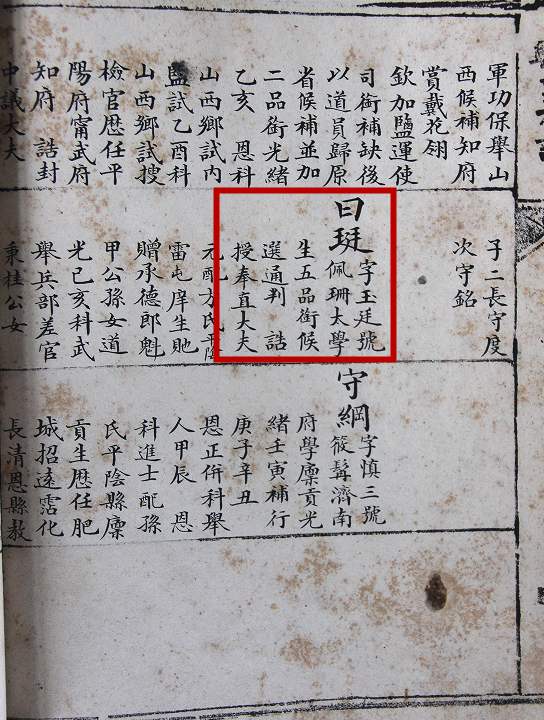 軍功保舉山
西候補知府
賞戴花翎
欽加鹽運使
司銜補缺後
以道員歸原
省候補並加
二品銜光緒
乙亥 恩科
山西鄉試內
監試乙酉科
山西鄉試搜
檢官歷任平
陽府甯武府
知府 誥封
中議大夫
子二長守度
次守銘
曰珽
字玉廷號
佩珊太學
生五品銜候
選通判 誥
授奉直大夫
元配方氏平陰
雷屯庠生貤
贈承德郎魁
甲公孫女道
光己亥科武
舉兵部差官
秉桂公女
守綱
字慎三號
筱髯濟南
府學廩貢光
緒壬寅補行
庚子辛丑
恩正併科舉
人甲辰 恩
科進士配孫
氏平陰縣廩
貢生歷任肥
城招遠霑化
長清恩縣教